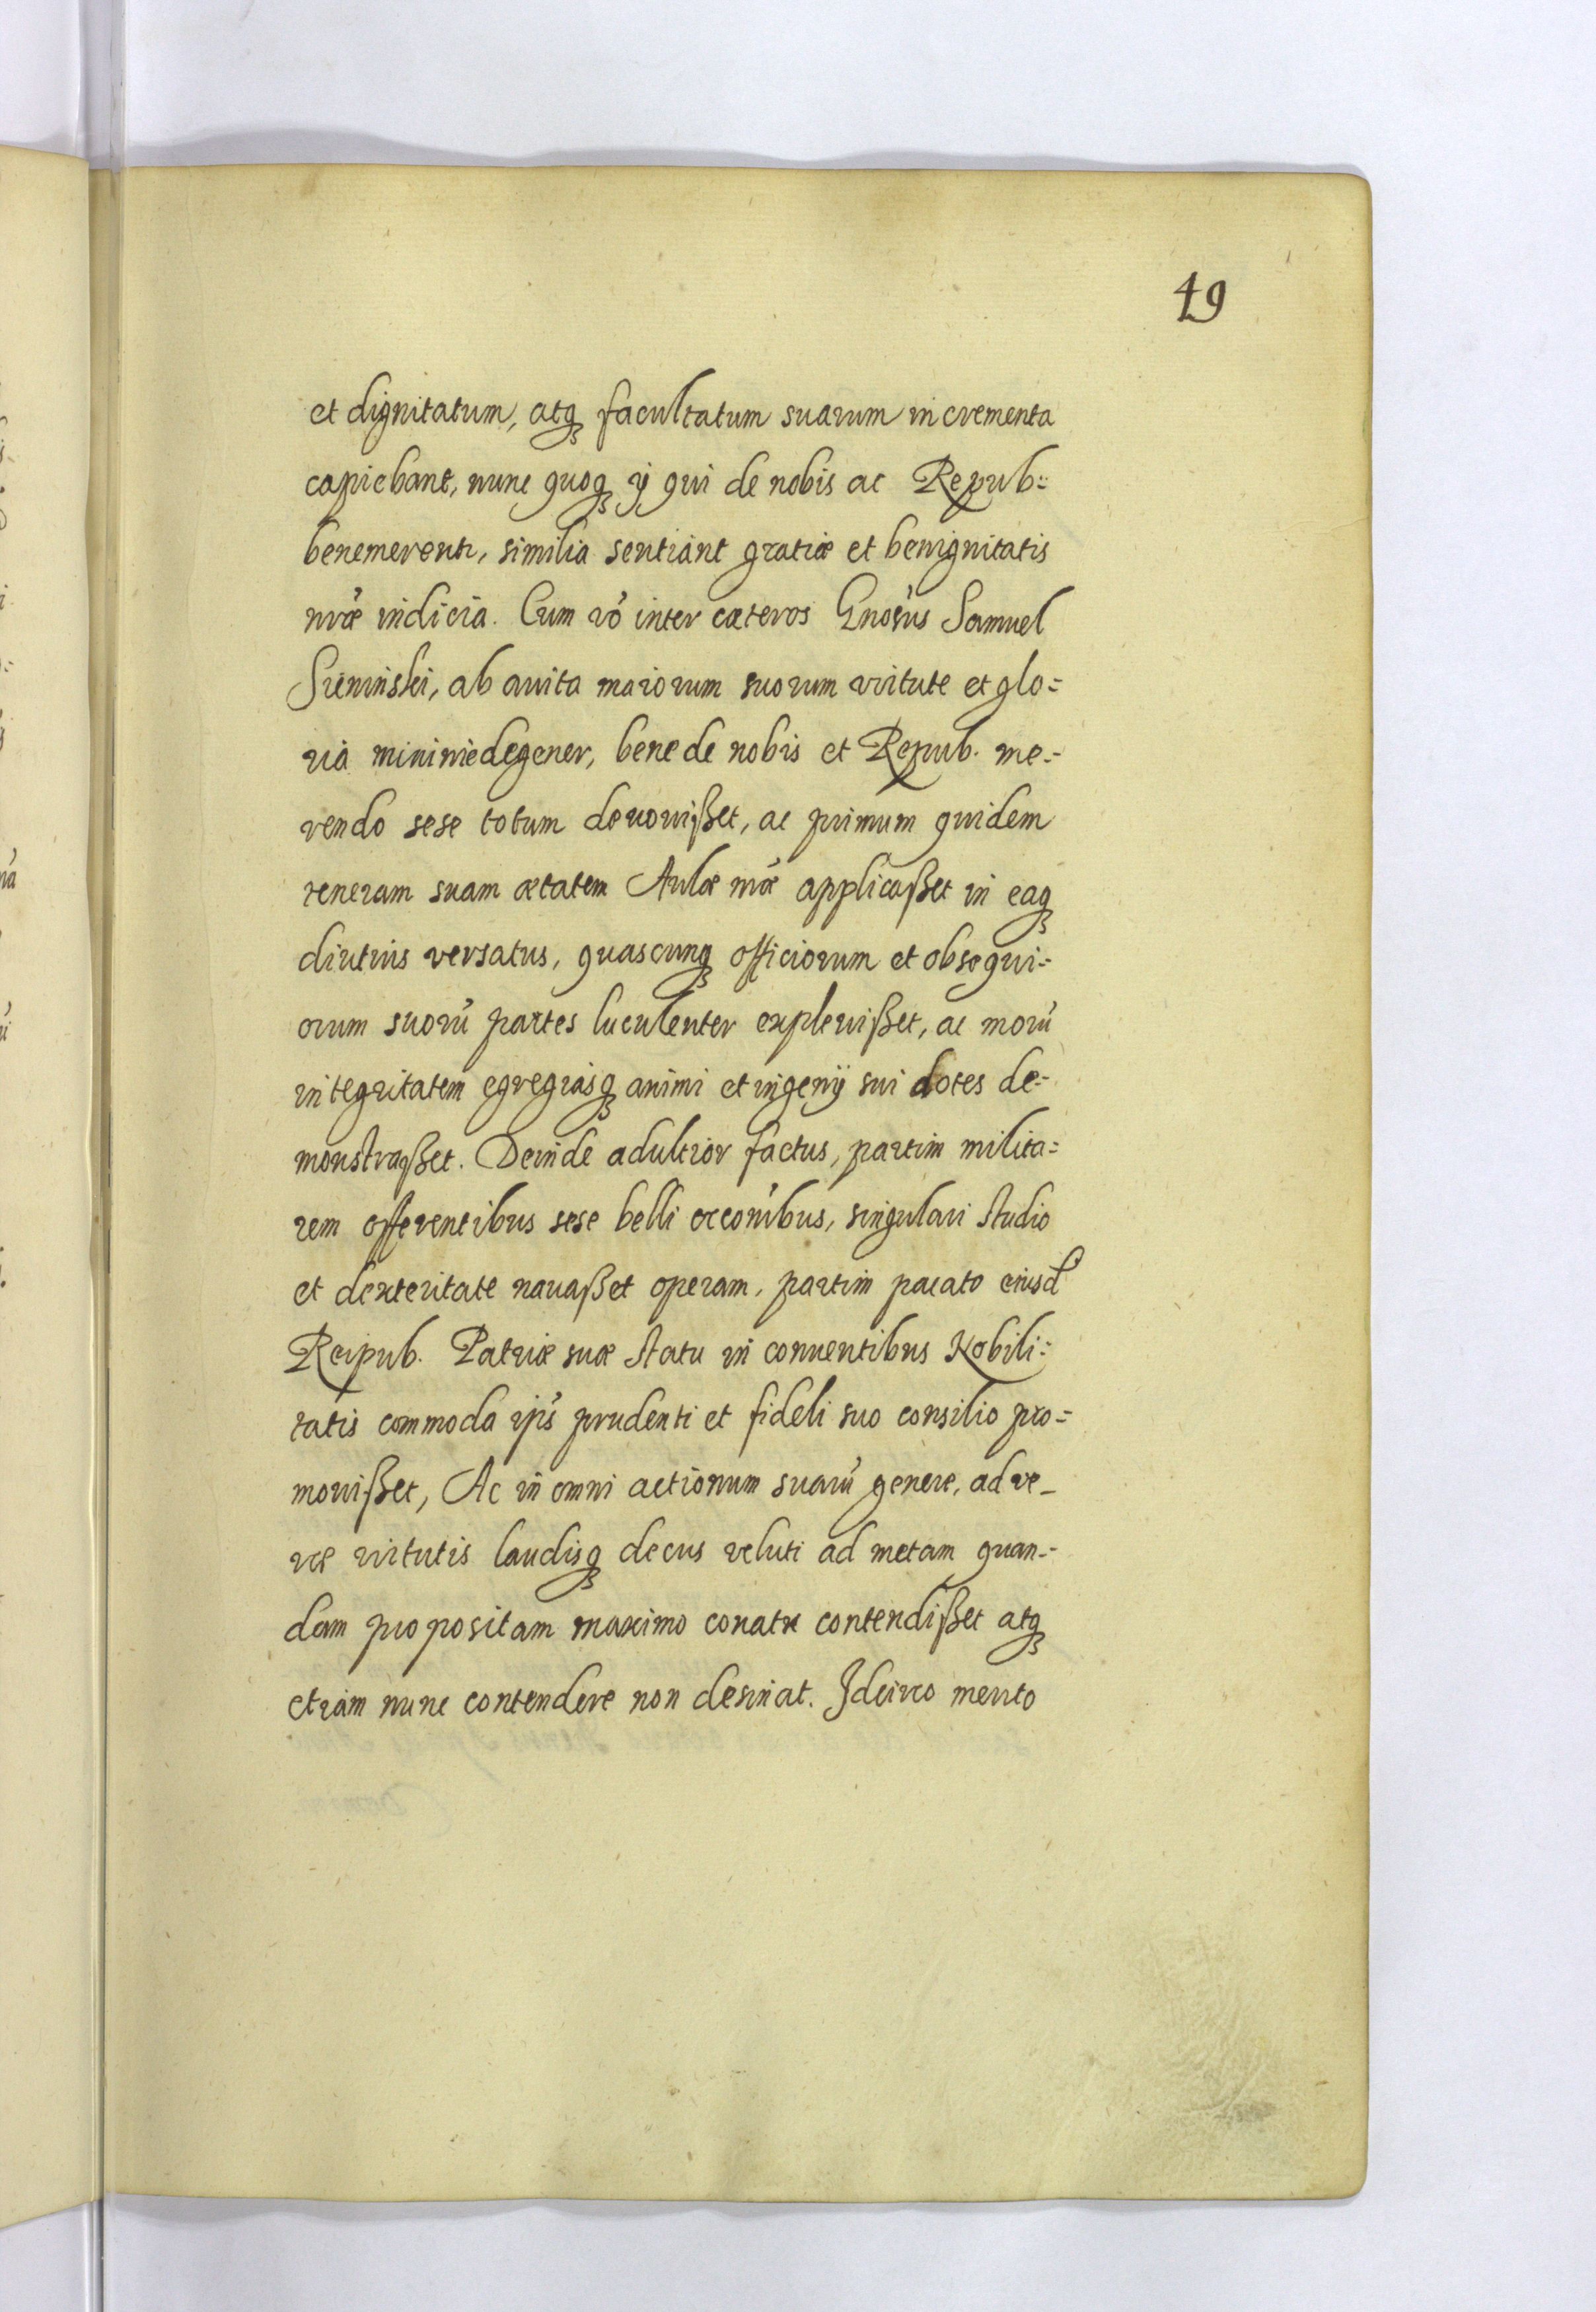 49
et dignitatum, atq₃ facultatum suarum incrementa
capiebant, nunc quoq₃ ij qui de nobis ac Repub:
benemerenti, similia sentiant gratiæ et benignitatis
nræ indicia. Cum vo inter cæteros Gnosus Samuel
Sieninski, ab avita maiorum suorum virtute et glo=
ria minime degener, bene de nobis et Repub. me=
rendo sese totum devovißet, ac primum quidem
teneram suam ætatem Aulæ nræ applicaßet in eaq₃
diutius versatus, quascunq₃ officiorum et obsequi=
orum suorū partes luculenter explevißet, ac morū
integritatem egregiasq₃ animi et ingenij sui dotes de=
monstraßet. Deinde adultior factus, partim milita=
rem offerentibus sese belli occonibus, singulari studio
et dexteritate navaßet operam, partim pacato eiusd
Reipub. Patriæ suæ statu in conventibus Nobili=
tatis commoda ips prudenti et fideli suo consilio pro=
movißet, Ac in omni actionum suarū genere, ad ve_
ræ virtutis laudisq₃ decus veluti ad metam quan=
dam propositam maximo conatu contendißet atq₃
etiam nunc contendere non desinat. Idcirco merito